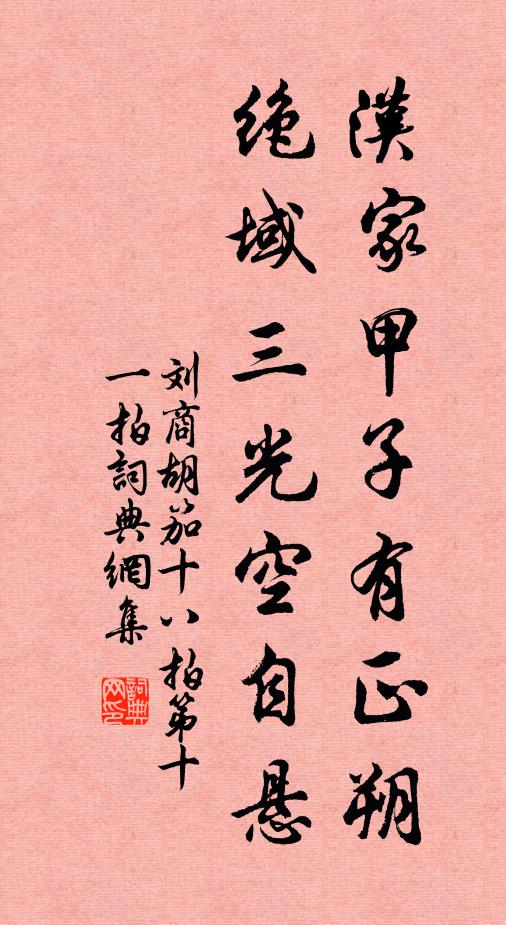 漢家甲子有正朔
绝域三光空自悬
刘商胡笳十八拍第十
一拍詞典網集
詞典
网印